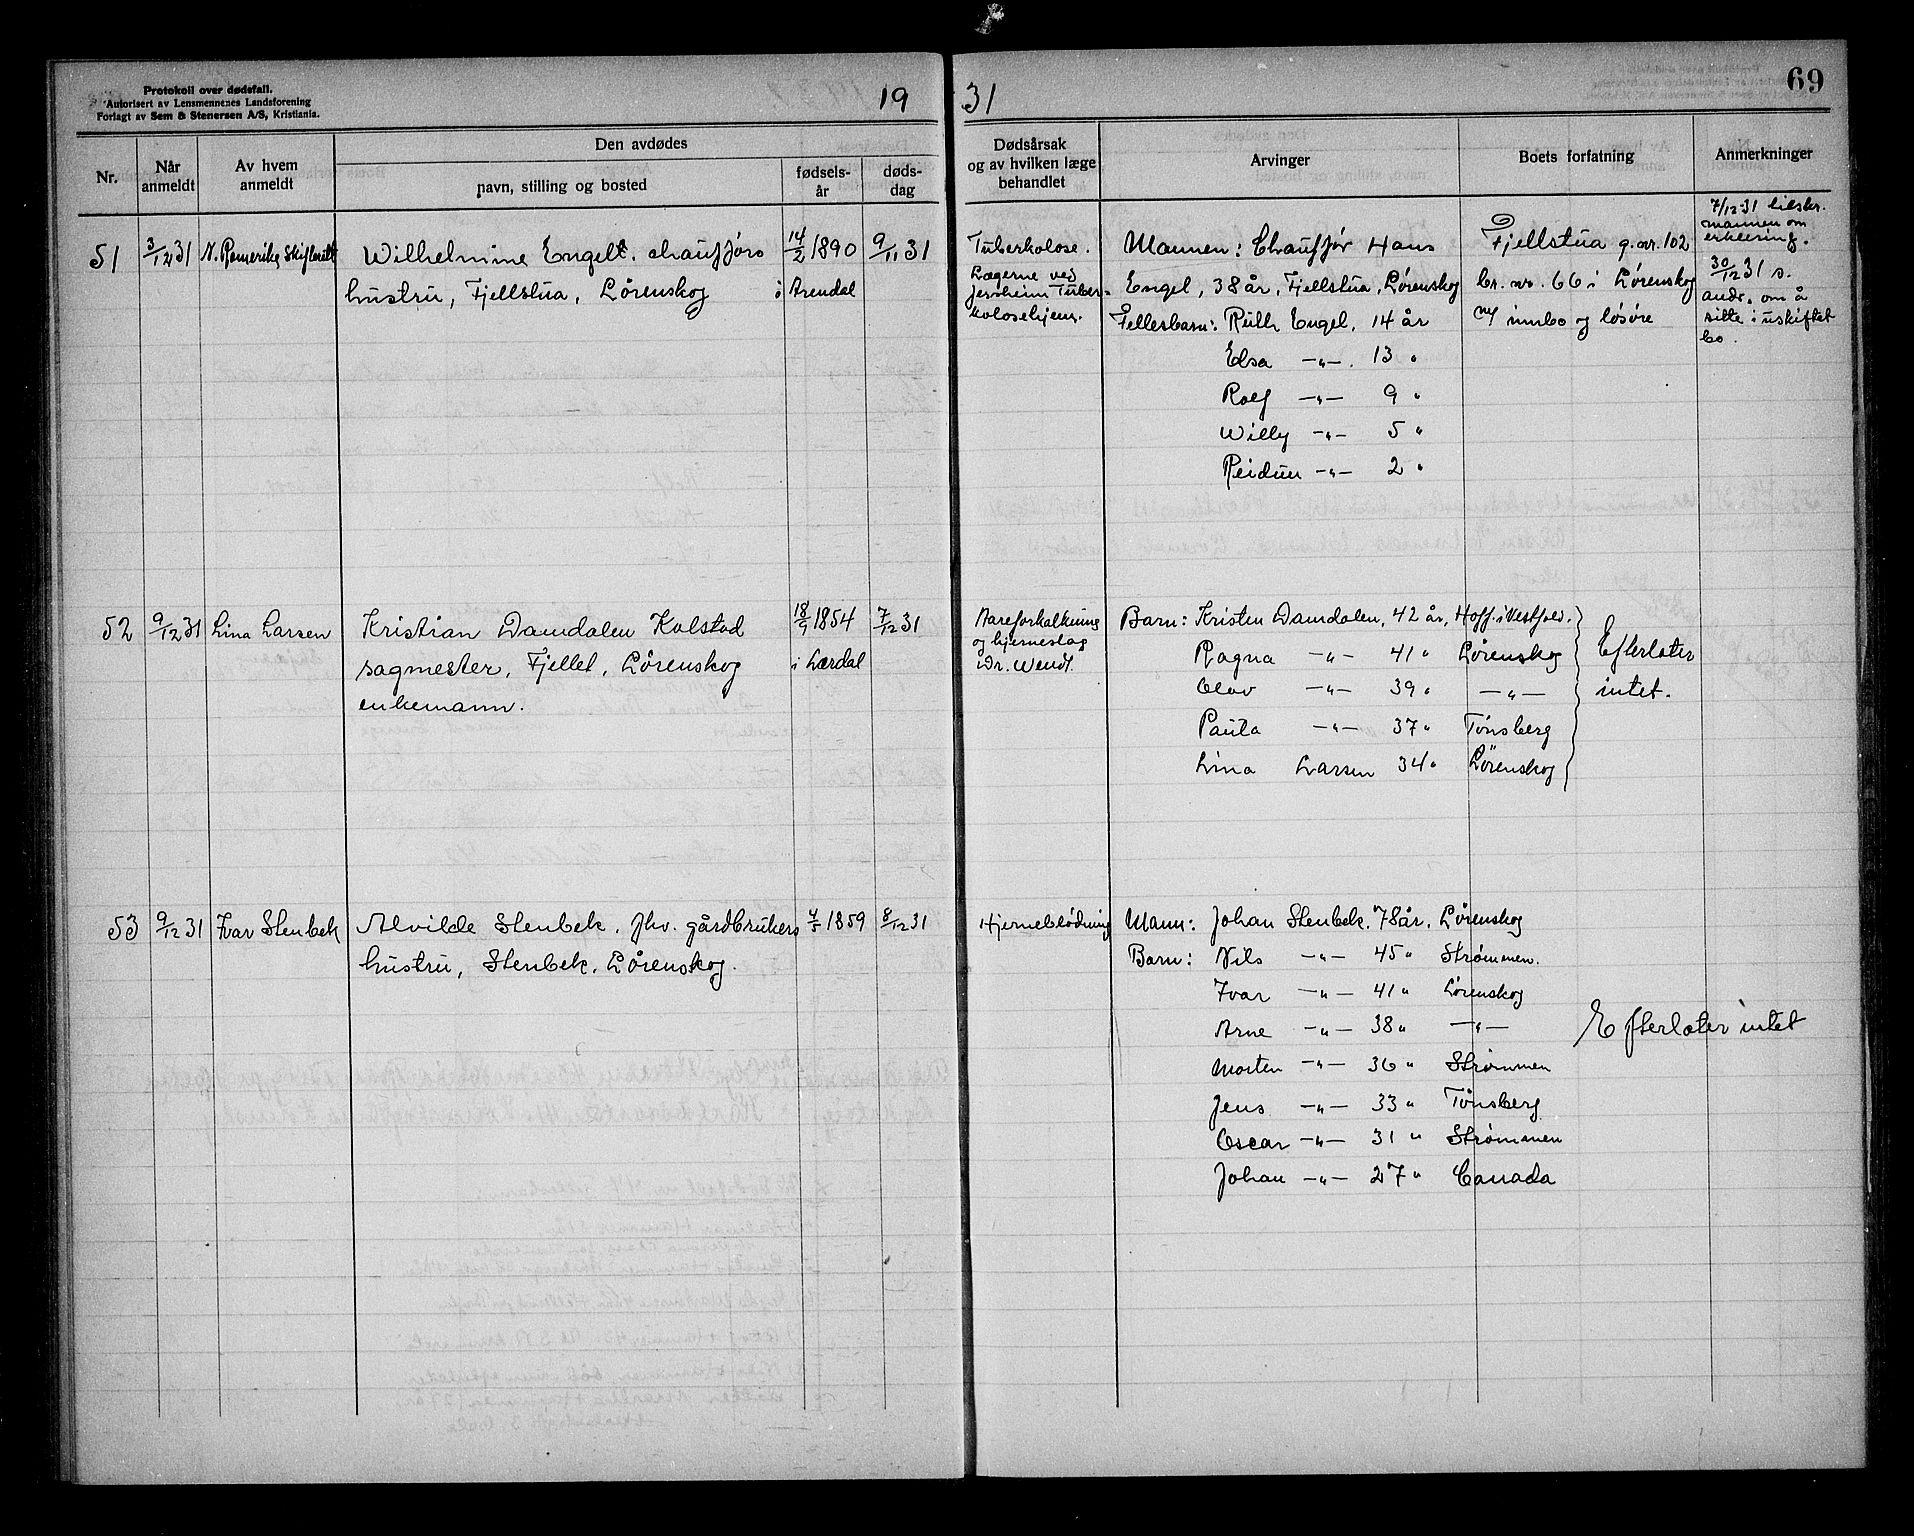 Protokoll over dødsfall.
Autorisert av Lensmennenes Landsforening
Forlagt av Sem & Stenersen A/S, Kristiania.
19 31
69
Nr.
Når anmeldt
Av hvem anmeldt
Den avdødes
navn, stilling og bosted
fødselsår
dødsdag
Dødsårsak og av hvilken læge behandlet
Arvinger
Boets forfatning
Anmerkninger
51 3/12 31 N. Romerike Skifterett
Wilhelmine Engel. chaufførs
hustru, Fjellstua, Lørenskog
14/2 1890
i Arendal
9/11 31
Tuberkolose.
Lægerne ved
Jessheim Tuber-
kolosehjem.
Mannen: Chauffør Hans
Engel, 38 år, Fjellstua, Lørenskog
Fellesbarn: Ruth Engel, 14 år
Elsa -"- 13 "
Rolf -"- 9 "
Willy -"- 5 "
Reidun -"- 2 "
Fjellstua g.nr. 102
br. nr. 66 i Lørenskog
m/ innbo og løsøre
7/12-31 tilskr.
mannen om
erklæring.
30/12 31 s.
andr. om å
sitte i uskiftet
bo.
52 9/12 31 Lina Larsen
Kristian Damdalen Kolstad
sagmester, Fjellet, Lørenskog
enkemann.
18/9 1854
i Lærdal
7/12 31
Aareforkalkning
og hjerneslag
Dr. Wendt.
Barn: Kristen Damdalen, 42 år, Hoff i Vestfold.
Ragna -"- 41 " Lørenskog
Olav -"- 39 " -"-
Paula -"- 37 " Tønsberg
Lina Larsen 34 " Lørenskog
Efterlater
intet.
53 9/12 31 Ivar Stenbek
Alvilde Stenbek, fhv. gårdbrukers
hustru, Stenbek, Lørenskog.
4/5 1859
8/12 31
Hjerneblødning
Mann: Johan Stenbek, 78 år, Lørenskog
Barn: Nils -"- 45 " Strømmen.
Ivar -"- 41 " Lørenskog
Arne -"- 38 " -"-
Morten -"- 36 " Strømmen
Jens -"- 33 " Tønsberg
Oscar -"- 31 " Strømmen
Johan -"- 27 " Canada
Efterlater intet